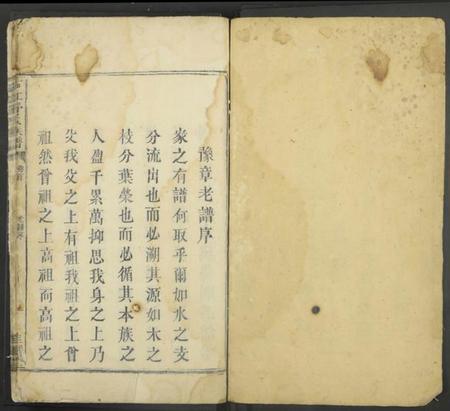 豫章老譜序
家之有譜何取乎爾如水之支
分流出也而必溯其源如木之
枝分葉榮也而必循其本族之
人盈千累萬抑思我身之上乃
父我父之上有祖我祖之上曾
祖然曾祖之上高祖而高祖之